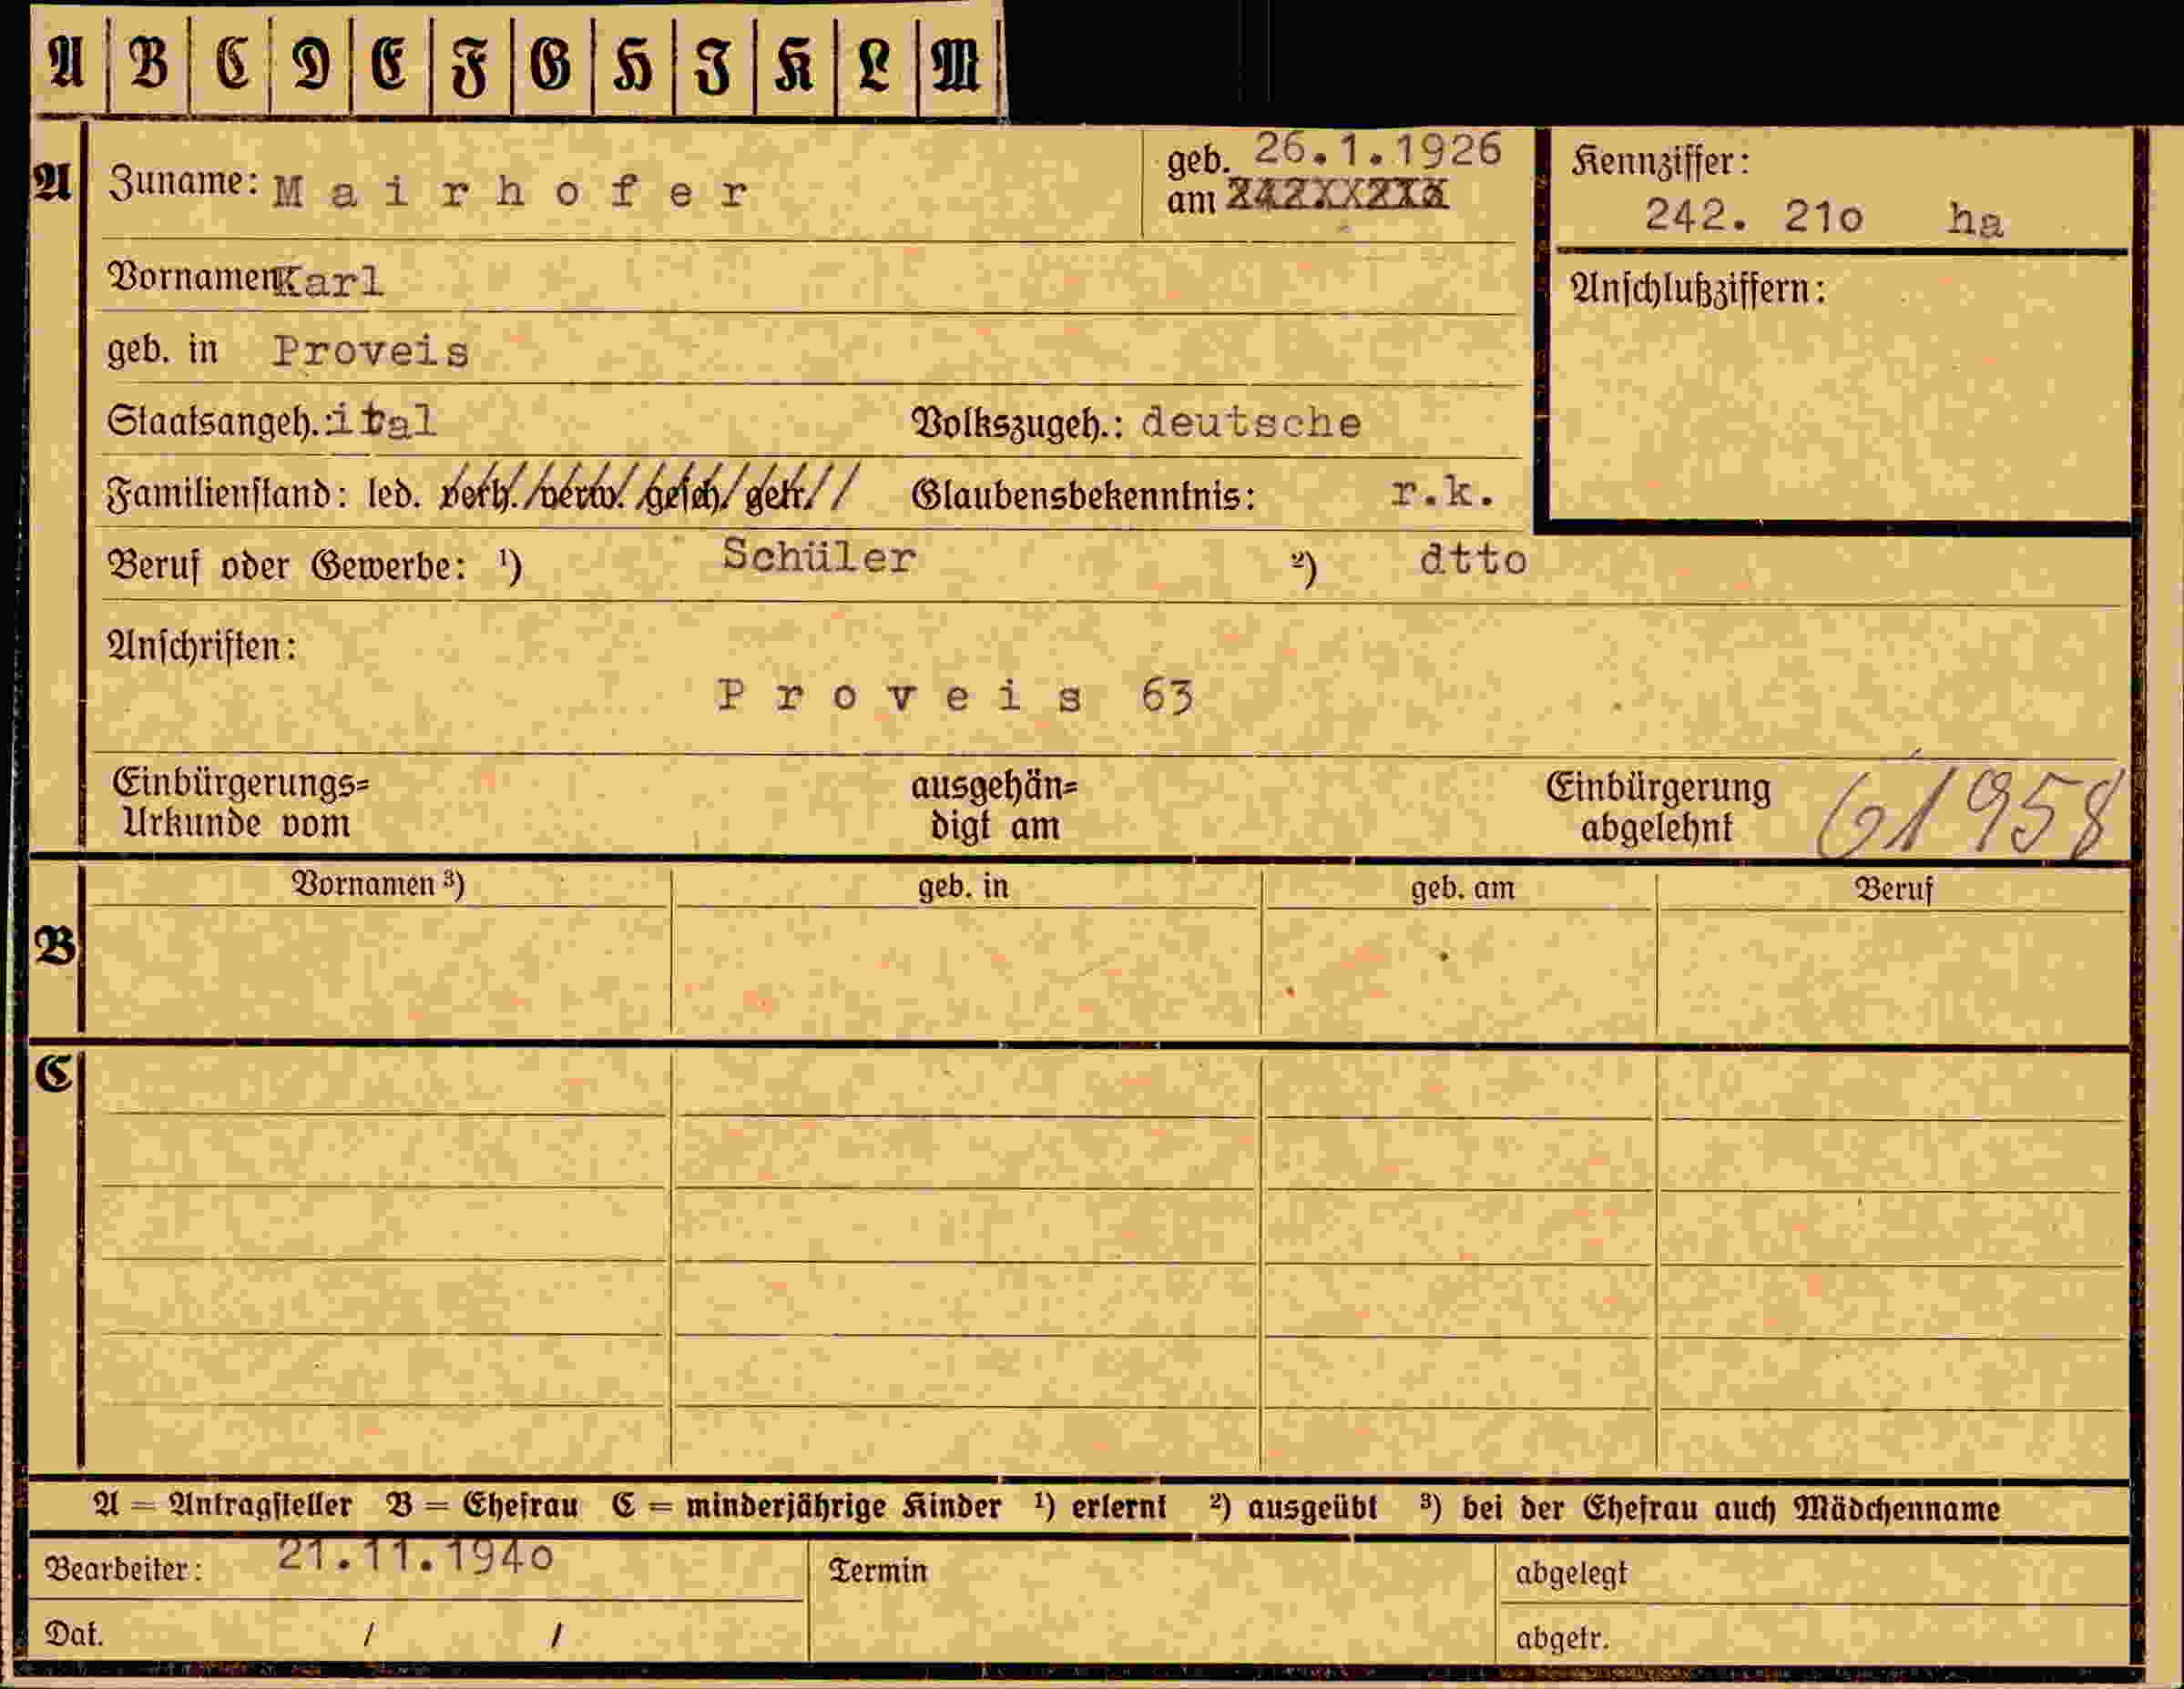 A B C D E F G H J K L M
A Zuname: Mairhofer geb. am 26.1.1926
Kennziffer: 242. 21o ha
Vornamen Karl
Anschlußziffern:
geb. in Proveis
Staatsangeh.: ital Volkszugeh.: deutsche
Familienstand: led. verh. verw. gesch. getr. Glaubensbekenntnis: r.k.
Beruf oder Gewerbe: ¹) Schüler ²) dtto
Anschriften:
Proveis 63
Einbürgerungs= Urkunde vom ausgehän= digt am Einbürgerung abgelehnt 61958
Vornamen ³) geb. in geb. am Beruf
B
C
A = Antragsteller B = Ehefrau C = minderjährige Kinder ¹) erlernt ²) ausgeübt ³) bei der Ehefrau auch Mädchenname
Bearbeiter: 21.11.194o Termin abgelegt
Dat. / / abgetr.